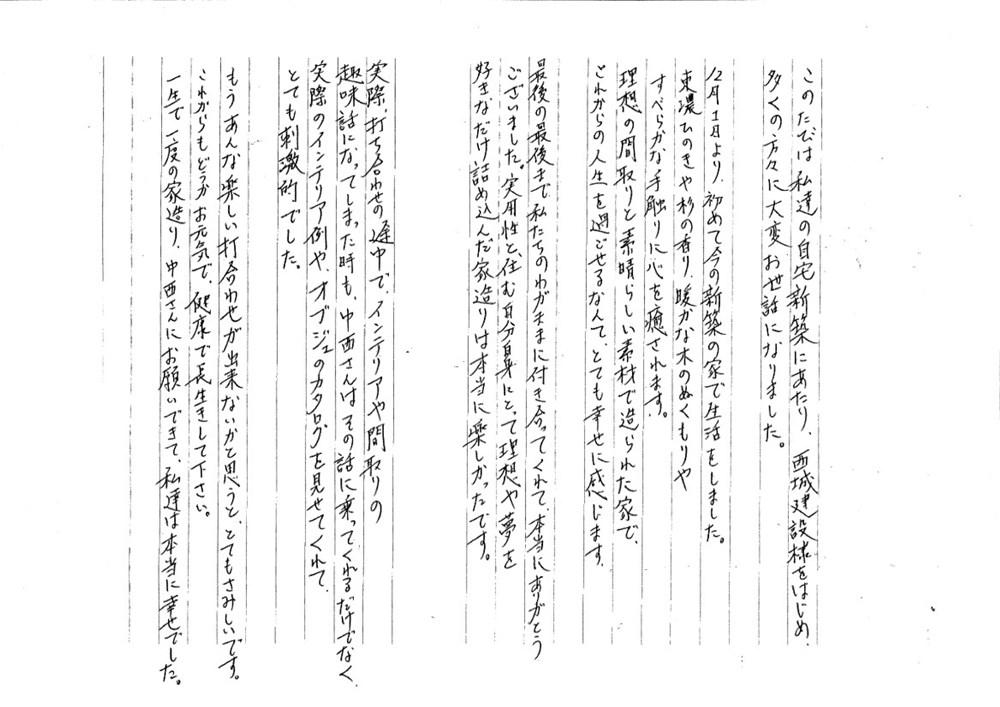 このたびは私達の自宅新築にあたり、西城建設様をはじめ、
多くの方々に大変お世話になりました。
12月1日より、初めて今の新築の家で生活をしました。
東濃ひのきや杉の香り、暖かな木のぬくもりや
すべらかな手触りに心を癒されます。
理想の間取りと素晴らしい素材で造られた家で、
これからの人生を過ごせるなんて、とても幸せに感じます。
最後の最後まで、私たちのわがままに付き合ってくれて、本当にありがとう
ございました。実用性と、住む自分自身にとって理想や夢を
好きなだけ詰め込んだ家造りは本当に楽しかったです。
実際、打ち合わせの途中で、インテリアや間取りの
趣味話になってしまった時も、中西さんはその話に乗ってくれるだけでなく、
実際のインテリア例や、オブジェのカタログを見せてくれて、
とても刺激的でした。
もうあんな楽しい打合わせが出来ないかと思うと、とてもさみしいです。
これからもどうかお元気で、健康で長生きして下さい。
一生で一度の家造り、中西さんにお願いできて、私達は本当に幸せでした。